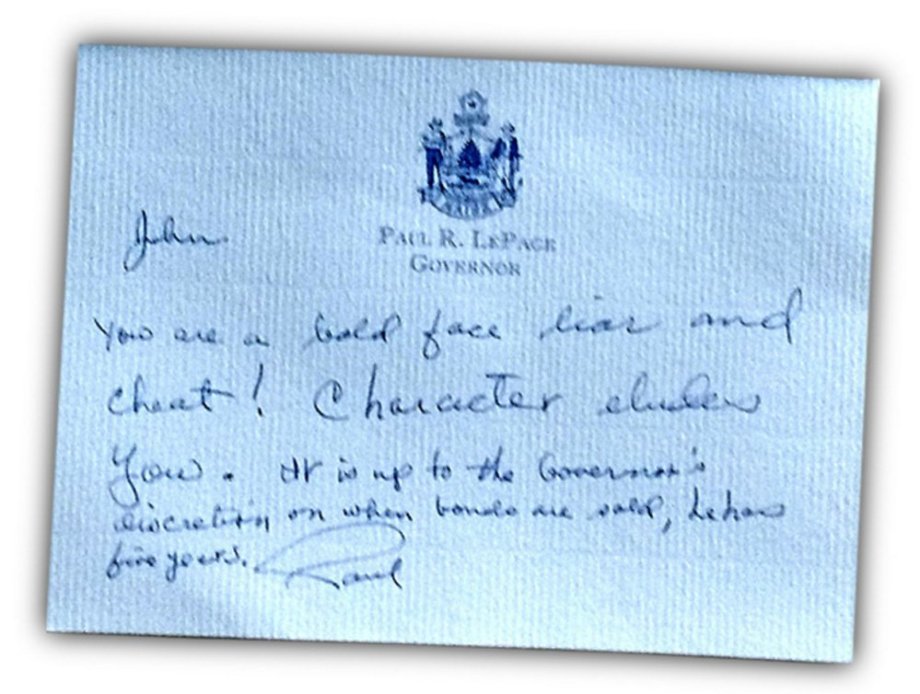 MAINE
PAUL R. LEPAGE
GOVERNOR
John
You are a bald face liar and
cheat! Character eludes
You. It is up to the Governor's
discretion on when bonds are sold, he has
five years. Paul